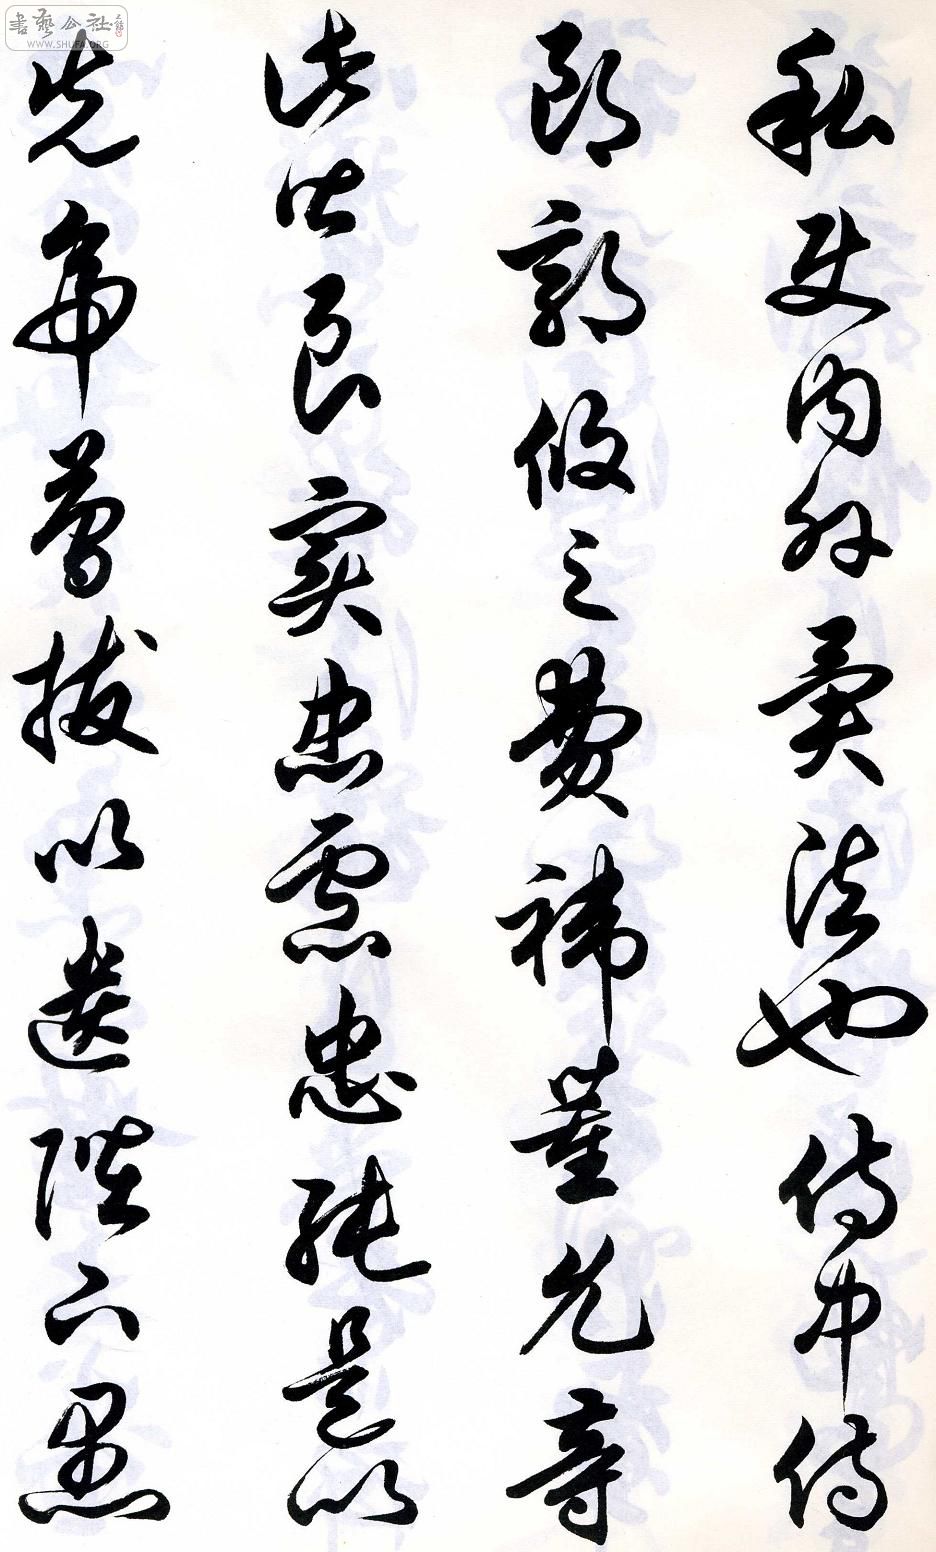 私使内外異法也侍中侍
郎郭攸之費禕董允等
此皆良實志慮忠純是以
先帝簡拔以遺陛下愚
書藝公社
WWW.SHUFA.ORG